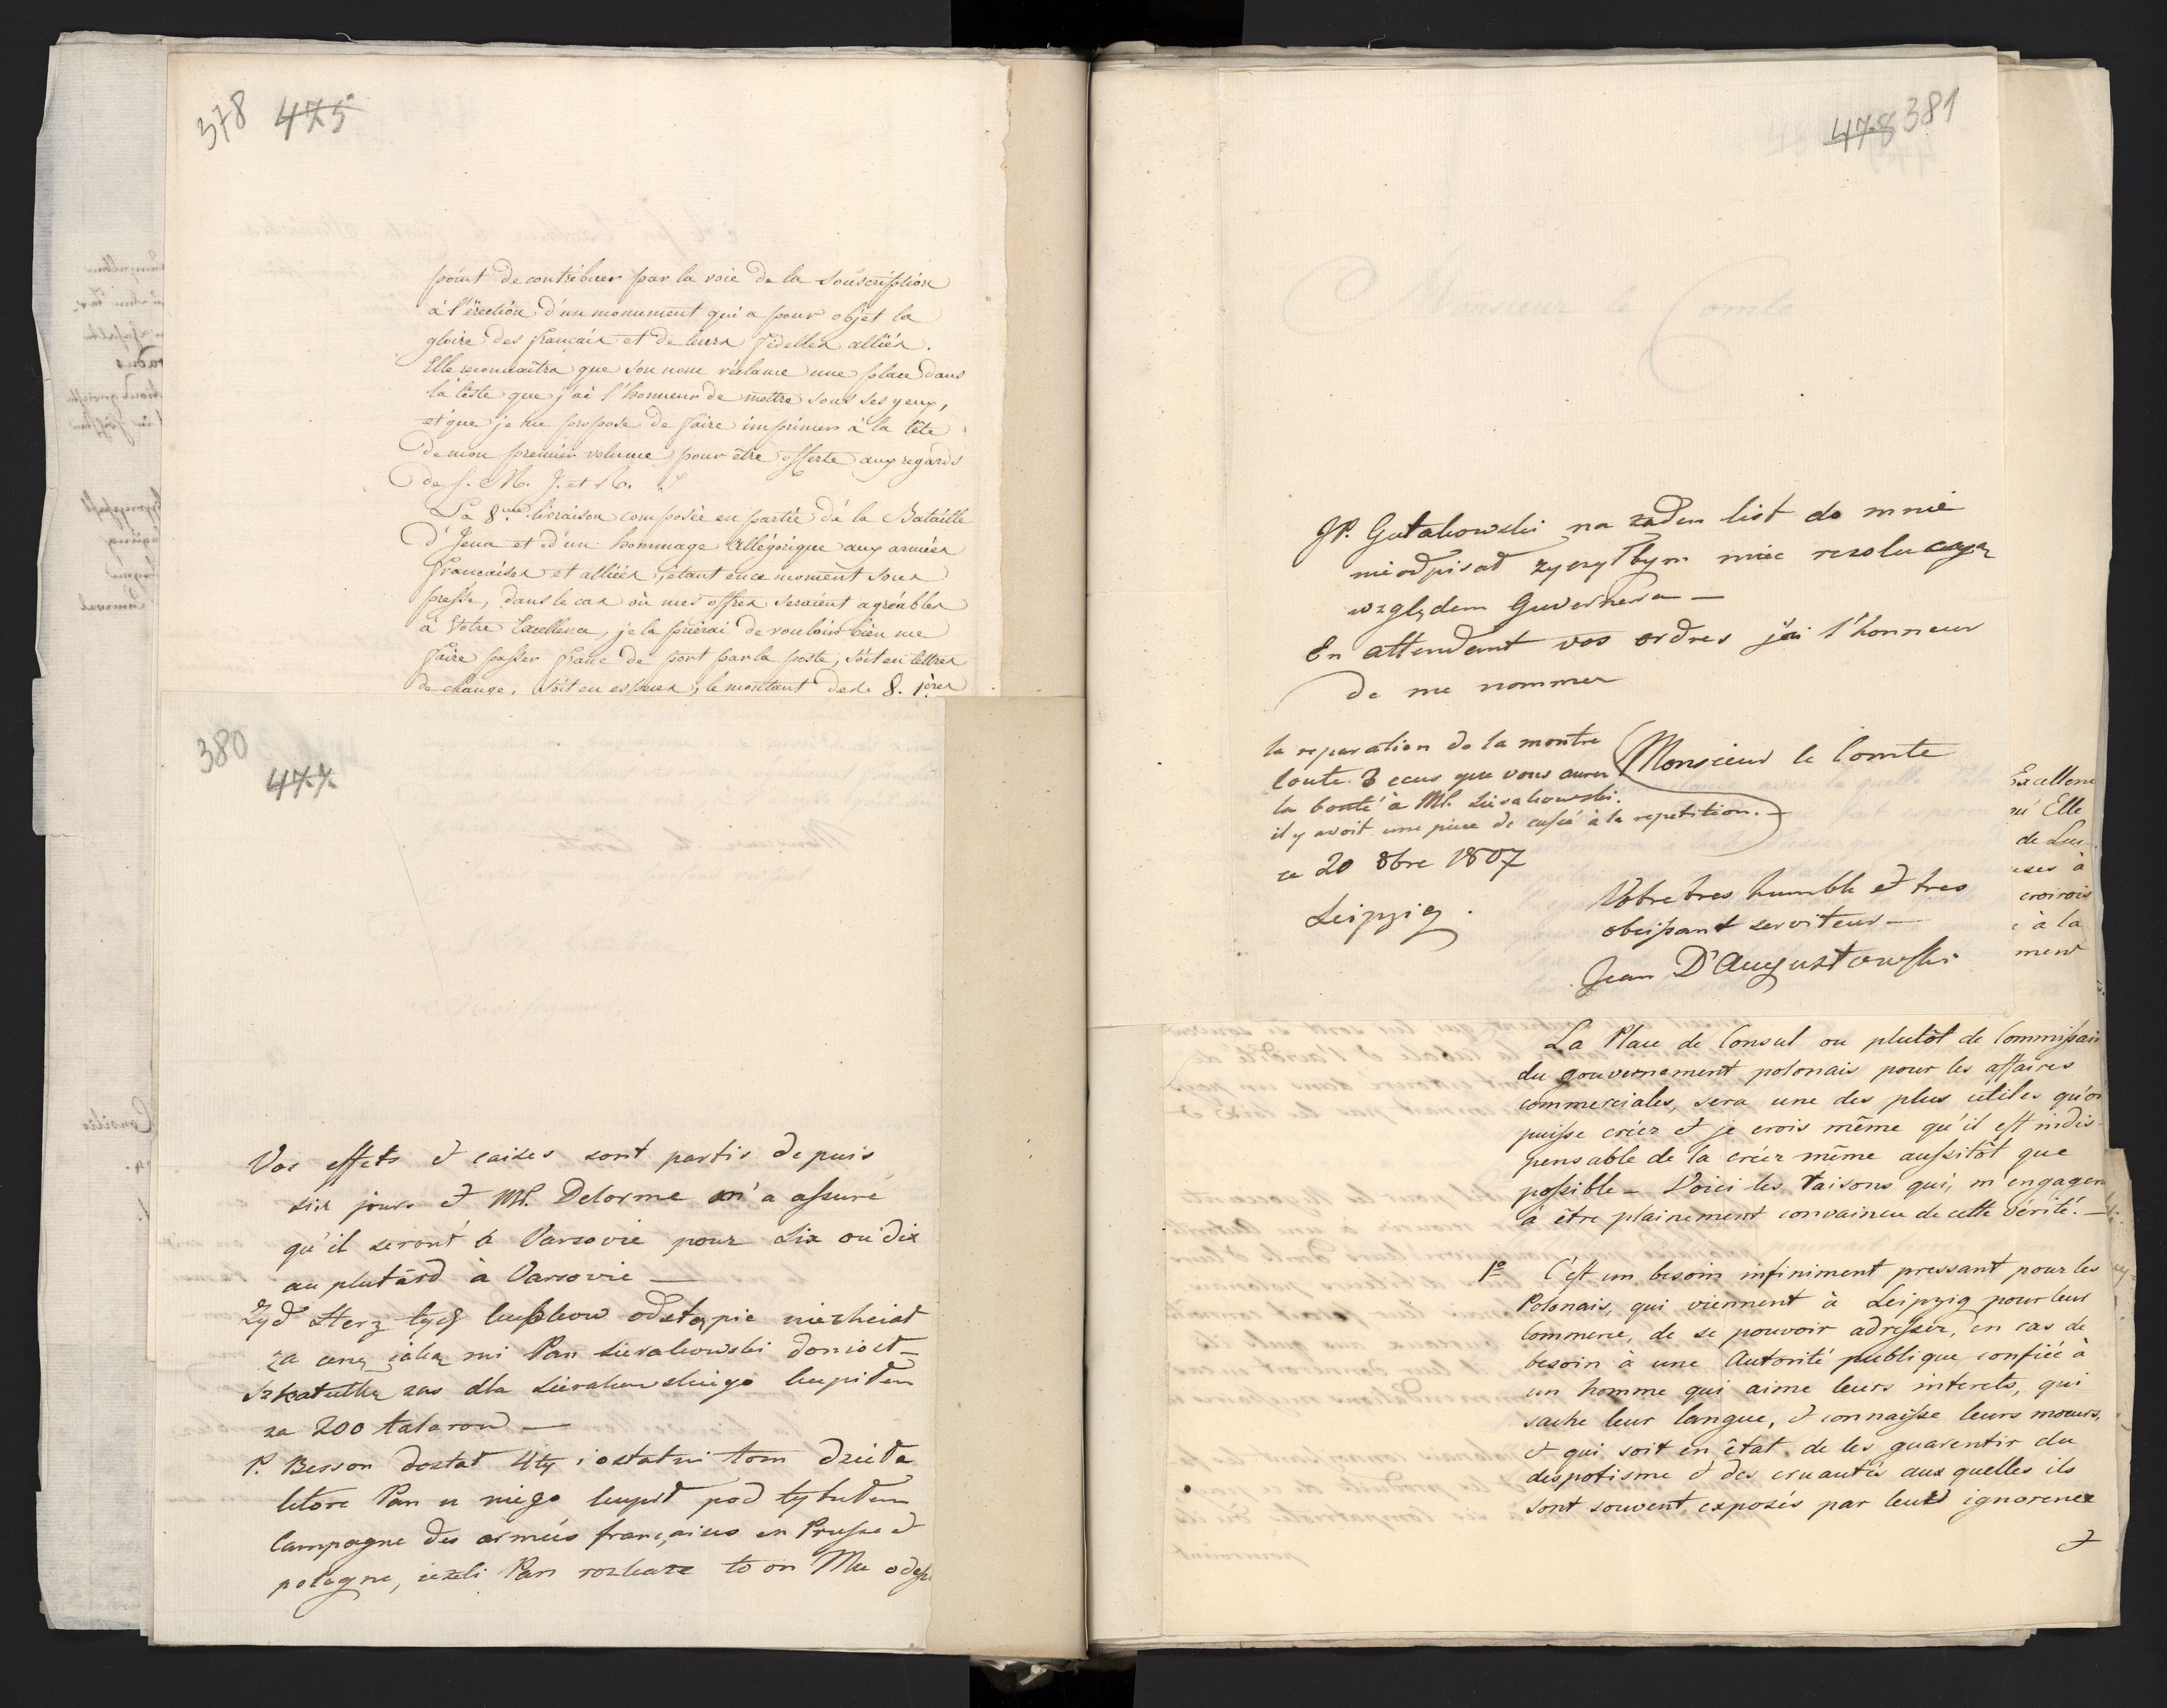 378 475
point de contribuer par la voie de la Souscription
à l'érection d'un monument qui a pour objet la
gloire des français et de leurs fidelles alliés.
Elle reconnaitra que son nom réclame une place dans
la liste que j'ai l'honneur de mettre sous ses yeux,
et que je me propose de faire imprimer à la tête
de mon premier volume pour être offerte aux regards
de S. M. I. et R.
La 8.me livraison composée en partie de la Bataille
d'Jena et d'un hommage Allégorique aux armées
françaises et alliées, étant en ce moment sous
presse, dans le cas où mes offres seraient agréables
à Votre Excellence, je la prierai de vouloir bien me
faire passer franc de port par la poste, soit en lettres
de change, soit en espèces, le montant des 8. 1ères
380
477
Vos effets et caises sont partis depuis
six jours et Mr. Delorme m'a assuré
qu'il seront à Varsovie pour six ou dix
au plutard à Varsovie —
Żyd Herz tych lustrow odstąpic niechciał
za cenę jaką mi Pan Sierakowski doniosł —
Szkatułkę zas dla Sierakowskiego kupiłem
za 200 talarow —
P. Besson dostał 4ty i ostatni tom dzieła
ktore Pan u niego kupił pod tytułem
Campagne des armées françaises en Prusse et
pologne, jezeli Pan rozkaze to on Mu odeszle
478 381
JP. Gutakowski na żaden list do mnie
nieodpisał zyczyłbym miec rezolucyą
względem Guvernera —
En attendant vos ordres j'ai l'honneur
de me nommer
Monsieur le Comte
la reparation de la montre
coute 3 ecus que vous aurez
la bonté à Mr. Sierakowski.
il y avoit une piece de cassé à la repetition. —
ce 20 8bre 1807
Leipzig.
Votre tres humble et tres
obeissant serviteur —
Jean D'Augustowski
Excellenc
qu' Elle
de Lui
uses à
croirois
à la
ment
La Place de Consul ou plutôt de Commissair
du gouvernement polonais pour les affaires
commerciales, sera une des plus utiles qu'on
puisse créer et je crois même qu'il est indis-
pensable de la créer même aussitôt que
possible — Voici les raisons qui, m'engagen
à être plainement convaincu de cette vérité. —
1o C'est un besoin infiniment pressant pour les
Polonais, qui viennent à Leipzig pour leur
Commerce, de se pouvoir adresser, en cas de
besoin à une Autorité publique confiée à
un homme qui aime leurs interets, qui
sache leur langue, et connaisse leurs mœurs,
et qui soit en état de les guarentir du
despotisme et des cruautés aux quelles ils
sont souvent exposés par leurs ignorence
et